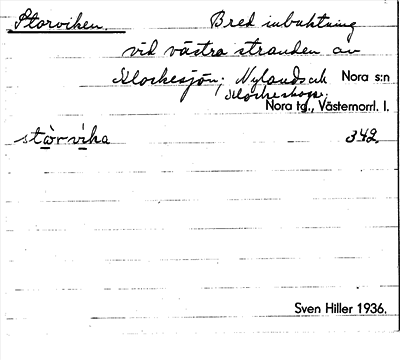 Storviken. Bred inbuktning
vid västra stranden av
Klockesjön; Nyland och Nora s:n
Klockeskogs; Nora tg., Västernorrl. l.
stòrvika 342.
Sven Hiller 1936.